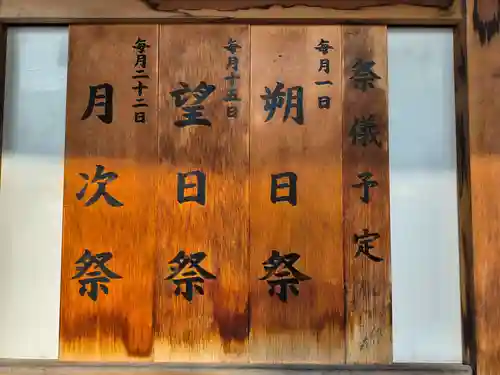 祭儀予定
毎月一日
朔日祭
毎月十五日
望日祭
毎月二十二日
月次祭